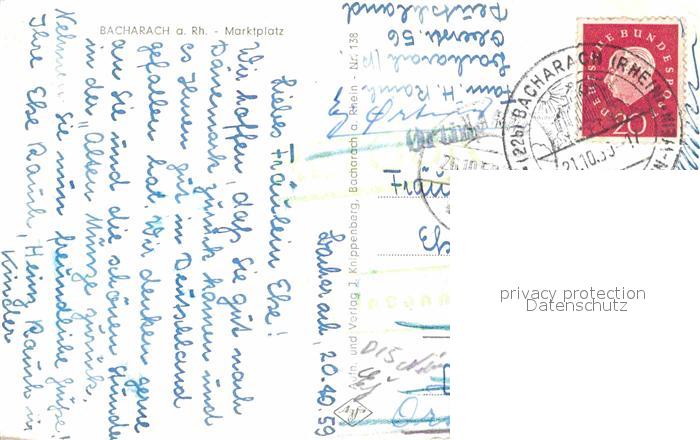 BACHARACH a. Rh. - Marktplatz
Bacharach, 20.10.59
Liebes Fräulein Else!
Wir hoffen, daß Sie gut nach
Dänemark zurück kamen und
es Ihnen gut in Deutschland
gefallen hat. Wir denken gerne
an Sie und die schönen Stunden
in der "Alten Münze" zurück.
Nehmen Sie nun freundliche Grüße!
Ihre Else Rauch, Heinz Rauch u
Kinder
Aufn. und Verlag J. Knippenberg, Bacharach a. Rhein - Nr. 138
Fam. H. Rauch
Bacharach
Oberstr. 56
Deutschland
DEUTSCHE BUNDESPOST
20
(22b) BACHARACH (RHEIN)
21.10.59
Fräu
privacy protection
Datenschutz